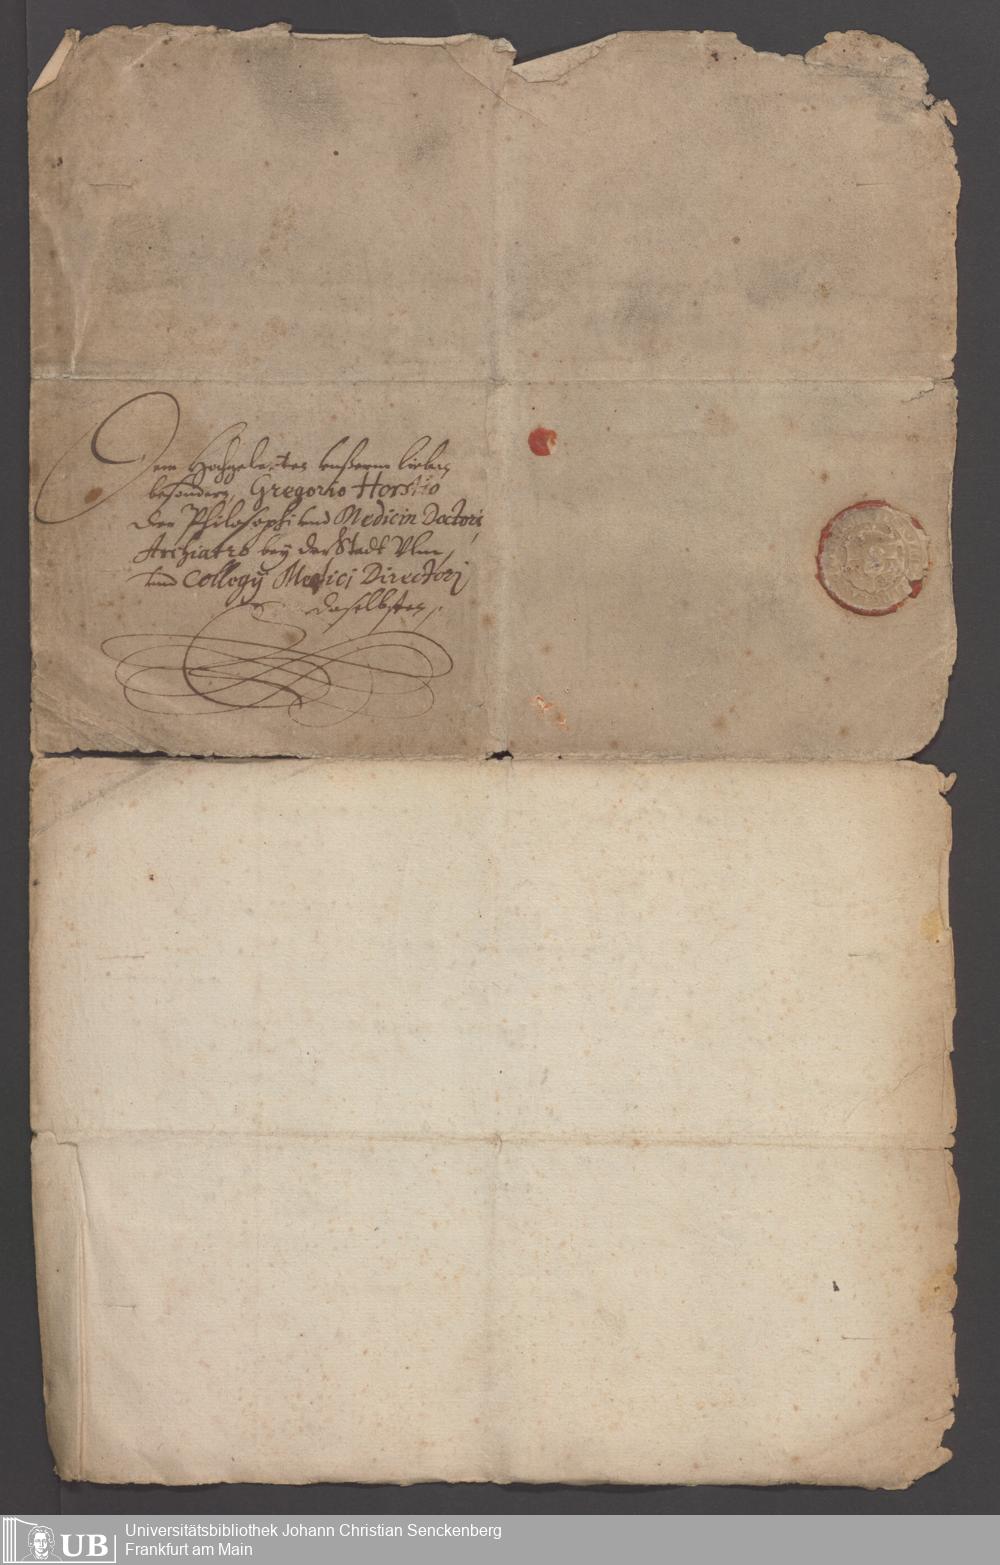 Dem Hochgelerten vnßerm lieben
besondern, Gregorio Horstio
der Philosophi vnd Medicin Doctori,
Archiatro bey der Stadt Vlm,
vnd Collegÿ Medici Directori
daselbsten.
UB
Universitätsbibliothek Johann Christian Senckenberg
Frankfurt am Main